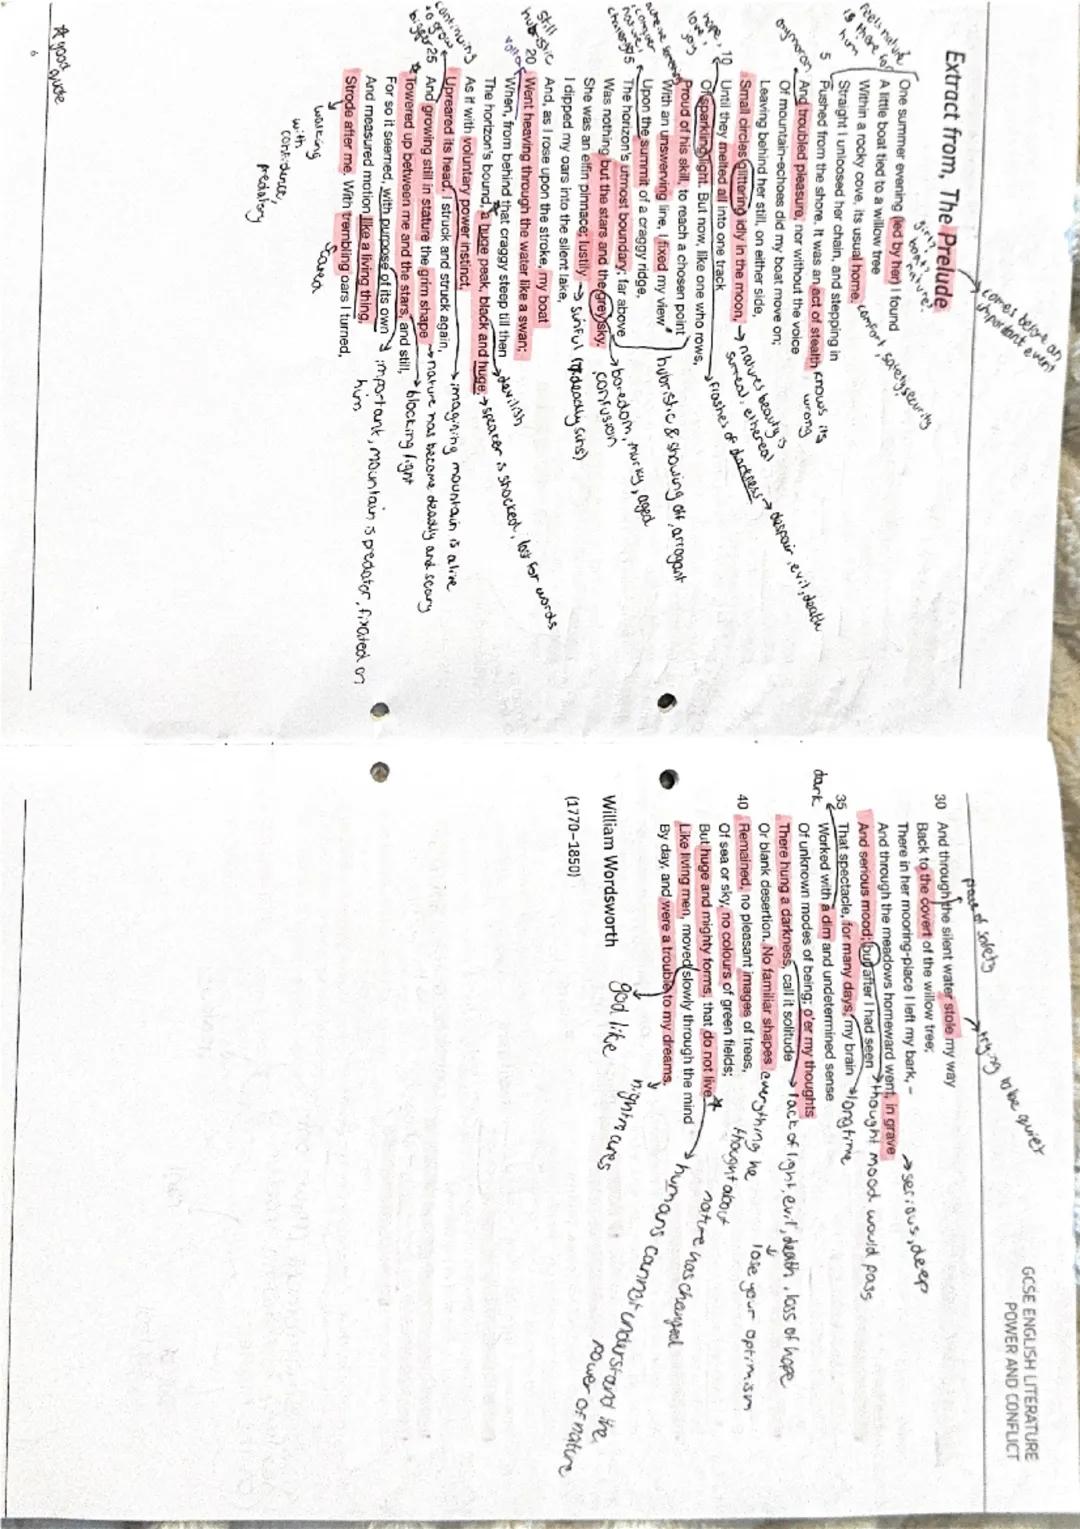 Extract from, The Prelude
comes before an important event
feels nature is there for him
girl? boat? nature?
One summer evening (led by her) I found
A little boat tied to a willow tree
Within a rocky cove, its usual home.
comfort, safety, security
Straight I unloosed her chain, and stepping in
5 Pushed from the shore. It was an act of stealth
knows its wrong
oxymoron
And troubled pleasure, nor without the voice
Of mountain-echoes did my boat move on;
Leaving behind her still, on either side,
Small circles glittering idly in the moon,
natures beauty is surreal, ethereal
hope, love, joy
10 Until they melted all into one track
Of sparkling light. But now, like one who rows,
flashes of darkness → despair, evil, death
Proud of his skill, to reach a chosen point
With an unswerving line, I fixed my view
hubristic & showing off, arrogant
conquer nature, challenge
15 Upon the summit of a craggy ridge,
The horizon's utmost boundary; far above
Was nothing but the stars and the grey sky.
boredom, murky, aged, confusion
She was an elfin pinnace; lustily
sinful (7 deadly sins)
I dipped my oars into the silent lake,
still hubristic
And, as I rose upon the stroke, my boat
20 Went heaving through the water like a swan;
When, from behind that craggy steep till then
devilish
The horizon's bound, a huge peak, black and huge,
speaker is shocked, lost for words
As if with voluntary power instinct,
Upreared its head. I struck and struck again,
imagining mountain is alive
continuing to grow bigger
25 And growing still in stature the grim shape
nature has become deadly and scary
Towered up between me and the stars, and still,
blocking light
For so it seemed, with purpose of its own
important, mountain is predator, fixated on him
And measured motion like a living thing,
Strode after me. With trembling oars I turned,
walking with confidence, predatory
scared
☆ good quote
6
GCSE ENGLISH LITERATURE
POWER AND CONFLICT
place of safety
trying to be quiet
30 And through the silent water stole my way
Back to the covert of the willow tree;
There in her mooring-place I left my bark, –
And through the meadows homeward went, in grave
serious, deep
And serious mood; but after I had seen
thought mood would pass
35 That spectacle, for many days, my brain
long time
dark
Worked with a dim and undetermined sense
Of unknown modes of being; o'er my thoughts
There hung a darkness, call it solitude
lack of light, evil, death, loss of hope
lose your optimism
Or blank desertion. No familiar shapes
everything he thought about nature has changed
40 Remained, no pleasant images of trees,
Of sea or sky, no colours of green fields;
But huge and mighty forms, that do not live
Like living men, moved slowly through the mind
humans cannot understand the power of nature
By day, and were a trouble to my dreams.
god like
nightmares
William Wordsworth
(1770–1850)